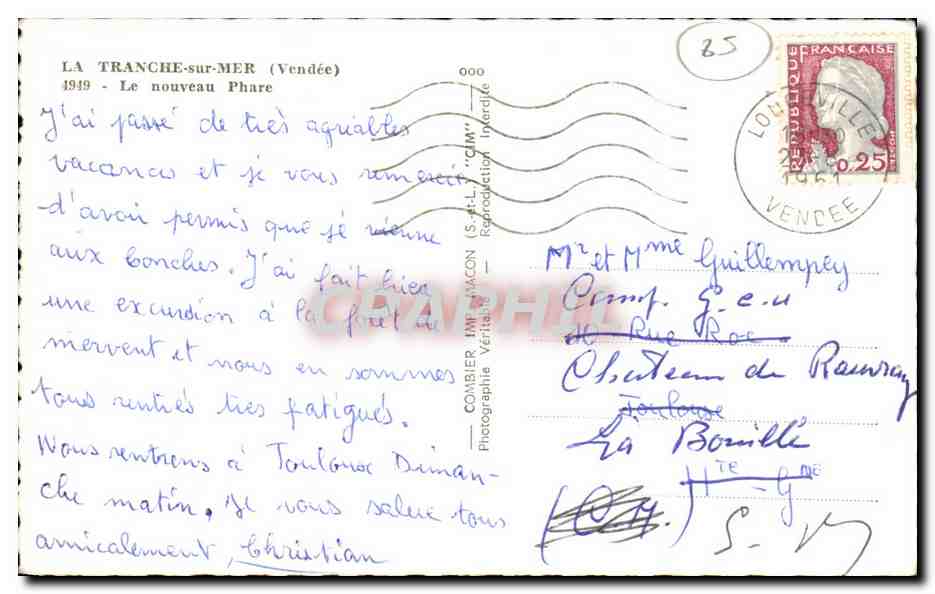 LA TRANCHE-sur-MER (Vendée)
4949 - Le nouveau Phare
J'ai passé de très agréables
vacances et je vous remercie
d'avoir permis que je vienne
aux Conches. J'ai fait hier
une excursion à la forêt de
mervent et nous en sommes
tous rentrés très fatigués.
Nous rentrons à Toulouse Diman-
che matin. Je vous salue tous
amicalement, Christian
COMBIER IMP. MACON (S.-et-L.) "CIM"
Photographie Véritable - Reproduction Interdite
85
REPUBLIQUE FRANÇAISE
0.25
POSTES
1961
VENDEE
Mr et Mme Guillempey
Camp. G.c.u
10 Rue Roc
Château de
Toulouse
La Bouille
Hte - Gne
S. M
CPAPHIL